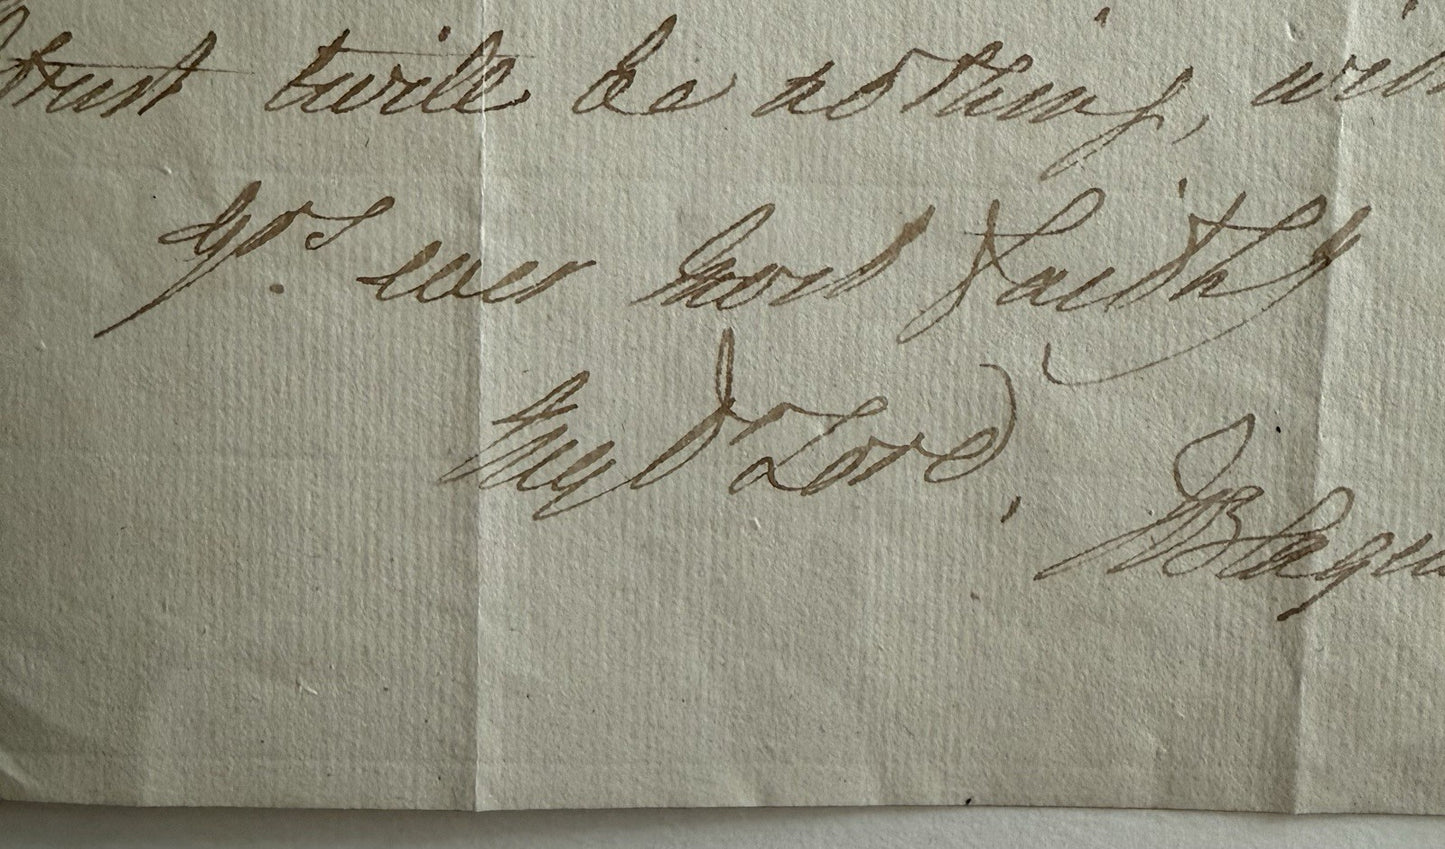 trust twill be nothing,
Yrs. ever most faithy
My Dr Lord,